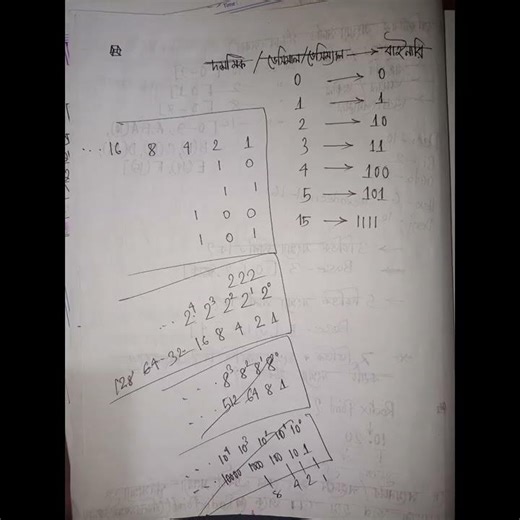 দশমিক / ডেসিমাল / ডেসিম্যাল → বাইনারি
0 → 0
1 → 1
2 → 10
3 → 11
4 → 100
5 → 101
15 → 1111
... 16 8 4 2 1
1 0
1 1
1 0 0
1 0 1
222
... 2⁴ 2³ 2² 2¹ 2⁰
128 64 32 16 8 4 2 1
... 8³ 8² 8¹ 8⁰
... 512 64 8 1
... 10⁴ 10³ 10² 10¹ 10⁰
... 10000 1000 100 10 1
8 4 2 1